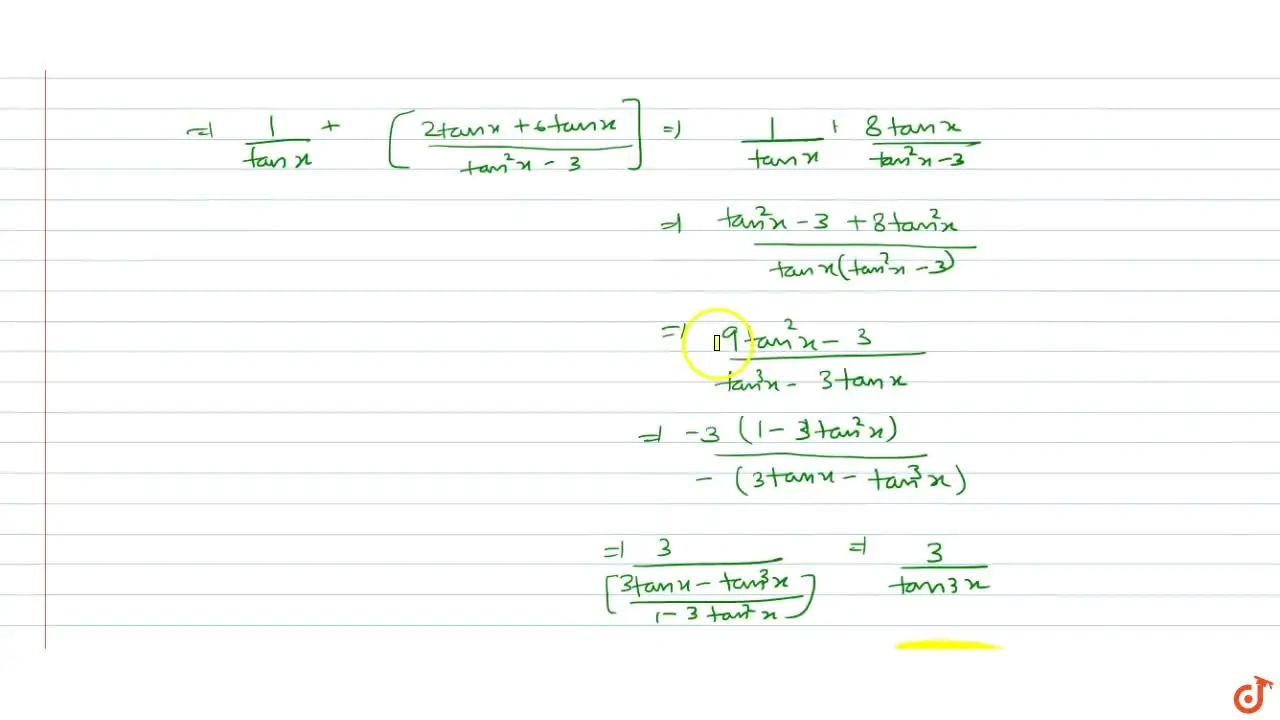 ⇒ 1/tan x + [(2tan x + 6tan x)/(tan²x - 3)] ⇒ 1/tan x + 8tan x/(tan²x - 3)
⇒ (tan²x - 3 + 8tan²x)/(tan x(tan²x - 3))
⇒ (9tan²x - 3)/(tan³x - 3tan x)
⇒ -3(1 - 3tan²x)/-(3tan x - tan³x)
⇒ 3/[(3tan x - tan³x)/(1 - 3tan²x)] ⇒ 3/tan3x